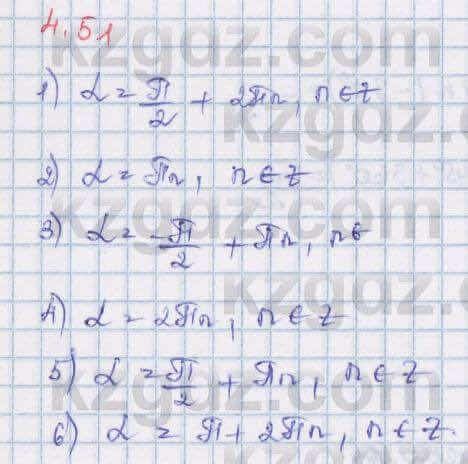 4.51
1) α = π/2 + 2πn, n ∈ Z
2) α = πn, n ∈ Z
3) α = -π/2 + πn, n ∈
4) α = 2πn, n ∈ Z
5) α = π/2 + πn, n ∈ Z
6) α = π + 2πn, n ∈ Z.
kzgdz.com
kzgdz.com
kzgdz.com
kzgdz.com
kzgdz.com